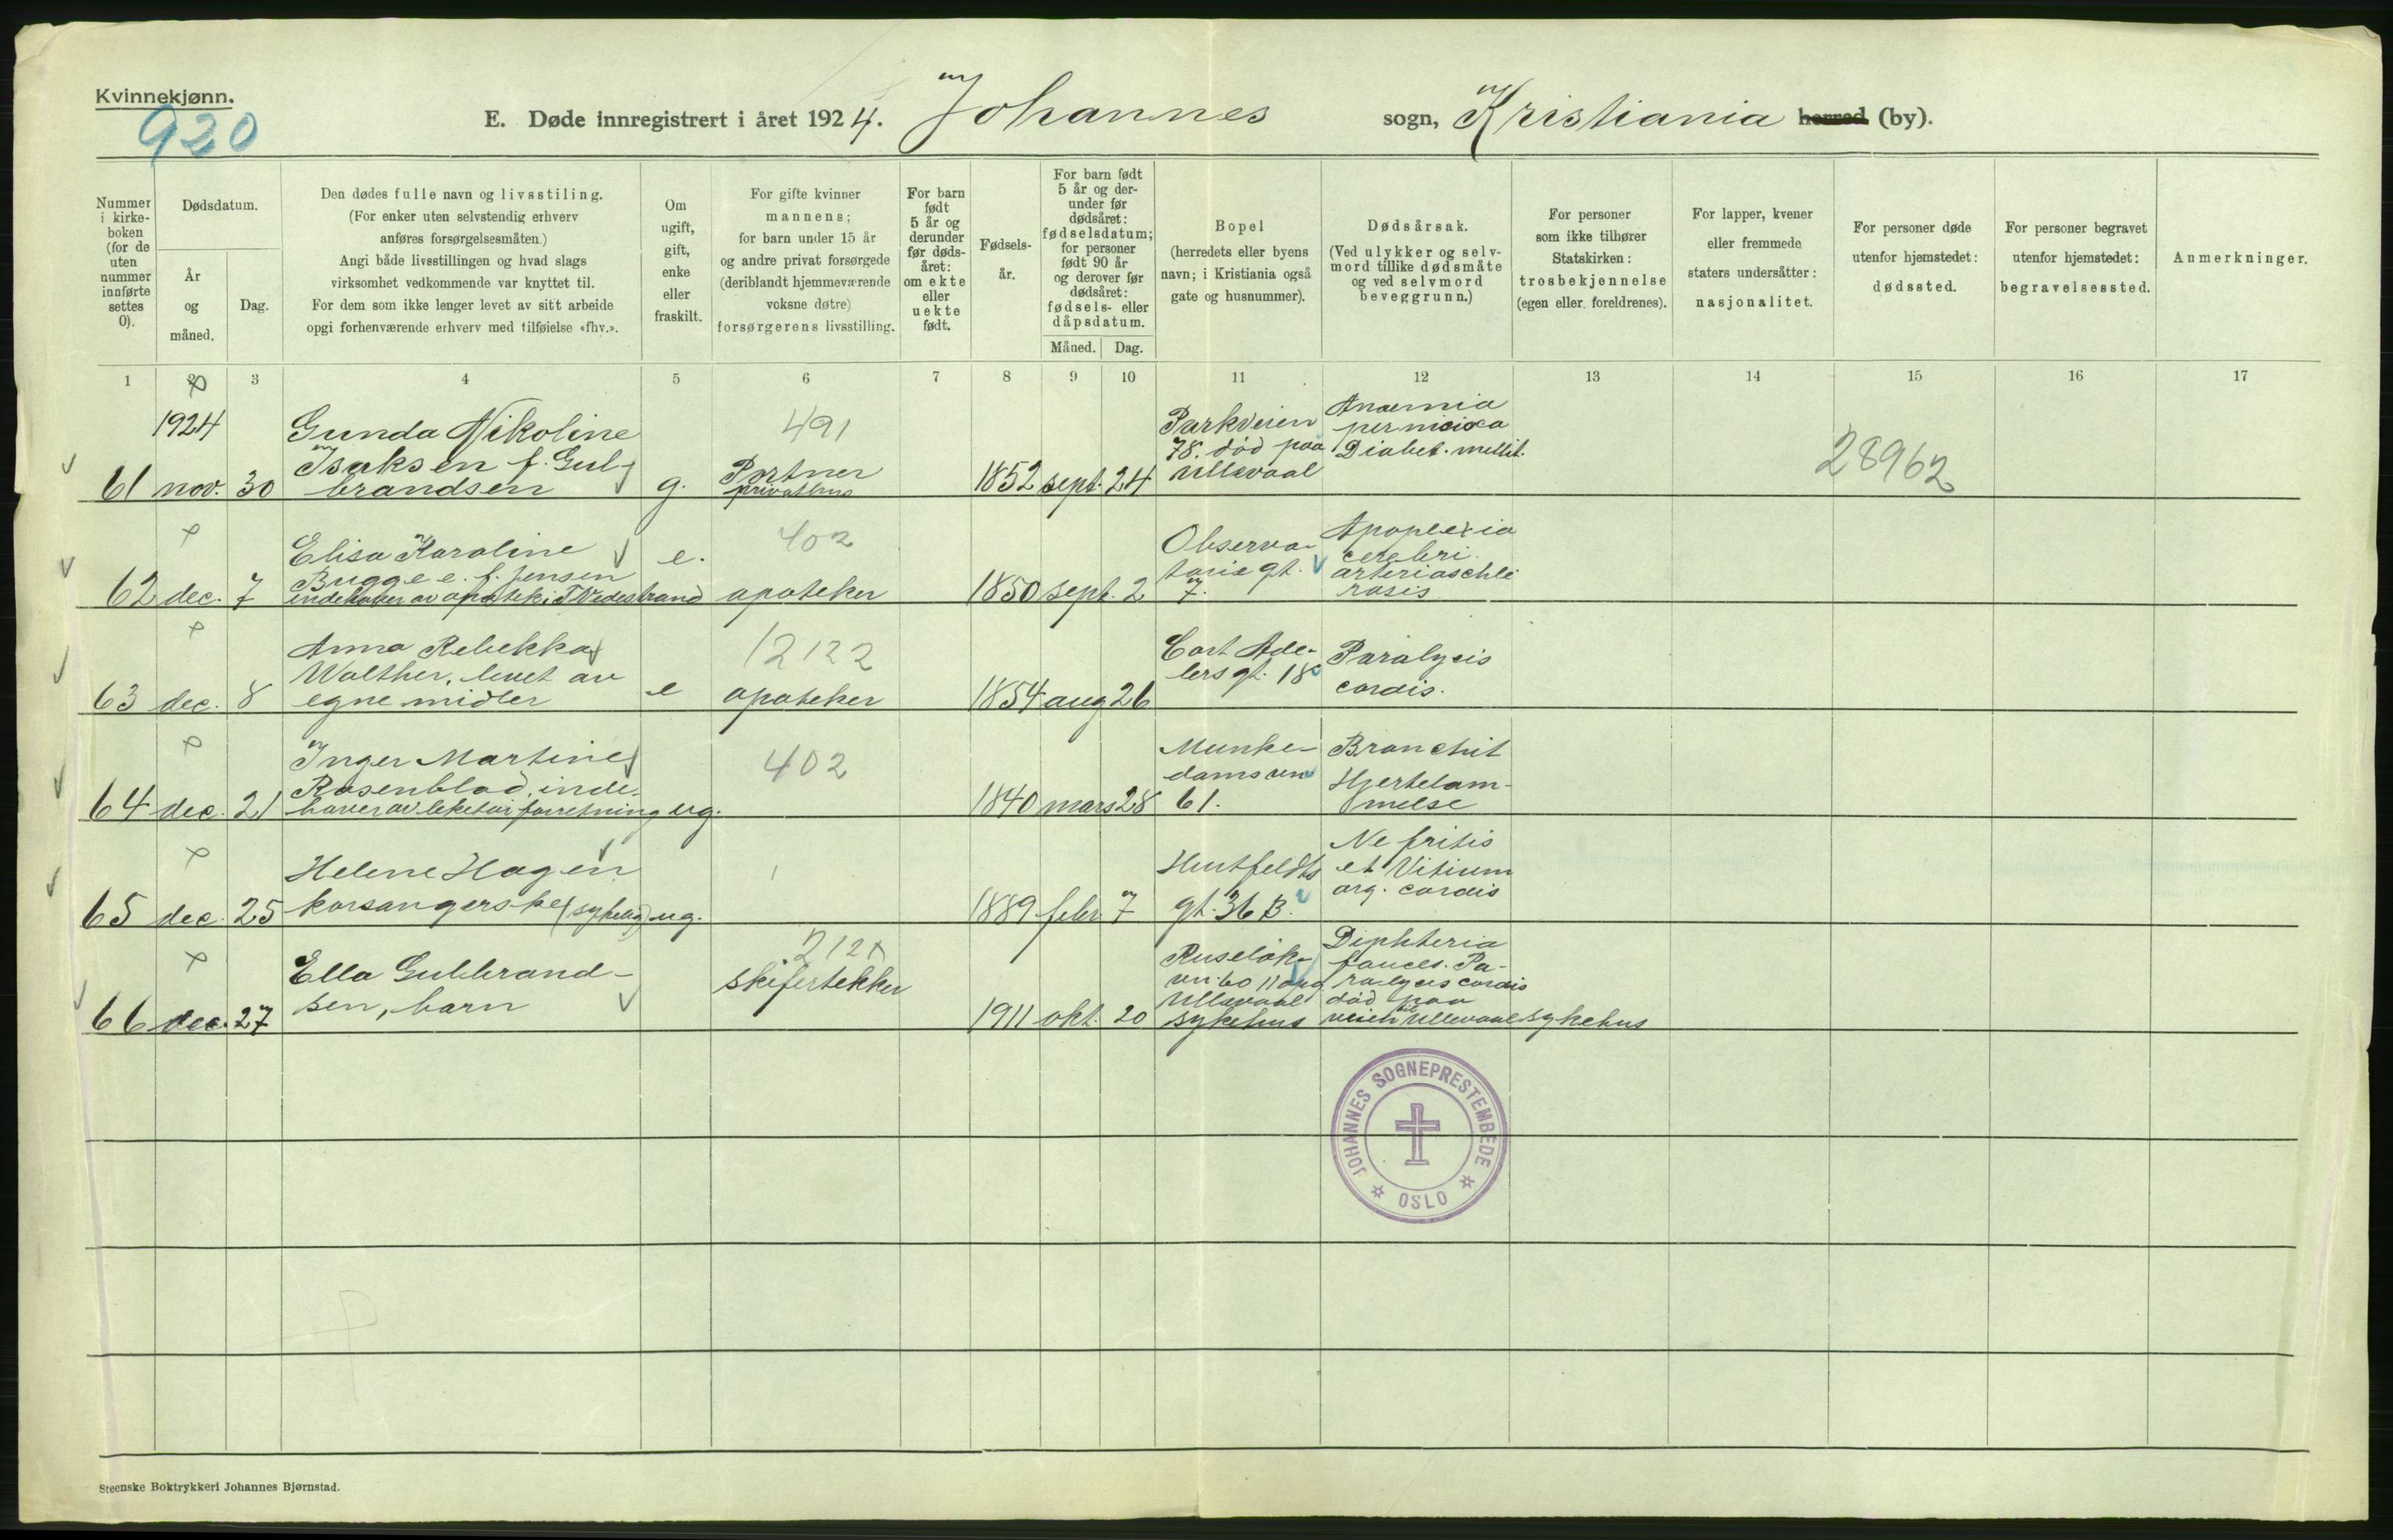 Kvinnekjønn.
920
E. Døde innregistrert i året 1924. Johannes sogn, Kristiania herred (by).
Nummer i kirkeboken (for de uten nummer innførte settes 0).
Dødsdatum.
År og måned.
Dag.
Den dødes fulle navn og livsstiling.
(For enker uten selvstendig erhverv
anføres forsørgelsesmåten.)
Angi både livsstillingen og hvad slags
virksomhet vedkommende var knyttet til.
For dem som ikke lenger levet av sitt arbeide
opgi forhenværende erhverv med tilføielse «fhv.».
Om
ugift,
gift,
enke
eller
fraskilt.
For gifte kvinner
mannens;
for barn under 15 år
og andre privat forsørgede
(deriblandt hjemmeværende
voksne døtre)
forsørgerens livsstilling.
For barn
født
5 år og
derunder
før døds-
året:
om ekte
eller
uekte
født.
Fødsels-
år.
For barn født
5 år og der-
under før
dødsåret:
fødselsdatum;
for personer
født 90 år
og derover før
dødsåret:
fødsels- eller
dåpsdatum.
Måned.
Dag.
Bopel
(herredets eller byens
navn; i Kristiania også
gate og husnummer).
Dødsårsak.
(Ved ulykker og selv-
mord tillike dødsmåte
og ved selvmord
beveggrunn.)
For personer
som ikke tilhører
Statskirken:
trosbekjennelse
(egen eller foreldrenes).
For lapper, kvener
eller fremmede
staters undersåtter:
nasjonalitet.
For personer døde
utenfor hjemstedet:
dødssted.
For personer begravet
utenfor hjemstedet:
begravelsessted.
Anmerkninger.
1 2 3 4 5 6 7 8 9 10 11 12 13 14 15 16 17
1924
61 nov. 30
Gunda Nikoline
Isaksen f. Gul-
brandsen
g.
491
Portner
privathus
1852 sept. 24
Parkveien
78. død paa
Ullevaal
Anaemia
perniciosa
Diabet. mellit.
28962
62 dec. 7
Elisa Karoline
Bugge e. f. Jensen
indehaver av apotek i Tvedestrand
e.
402
apoteker
1850 sept. 2
Observa-
torie gt.
7.
Apoplexia
cerebri.
arterioschle
rosis
63 dec. 8
Anna Rebekka
Walther, levet av
egne midler
e
12122
apoteker
1854 aug 26
Cort Ade-
lers gt. 18
Paralysis
cordis.
64 dec. 21
Inger Martine
Rosenblad, inde-
haver av leketøiforretning
ug.
402
1840 mars 28
Munke-
damsvn
61.
Bronchit
Hjertelam-
melse
65 dec. 25
Helene Hagen
korsangerske
ug.
1889 febr. 7
Huitfeldts
gt. 36 B.
Nefritis
et Vitium
org. cordis
66 dec. 27
Ella Gulbrand-
sen, barn
skifertekker
1911 okt. 20
Ruseløk-
vn. 60
Ullevaal
sykehus
Diphteria
fauces. Pa-
ralysis cordis
død paa
veien til Ullevaal sykehus
JOHANNES SOGNEPRESTEMBEDE
OSLO
Steenske Boktrykkeri Johannes Bjørnstad.